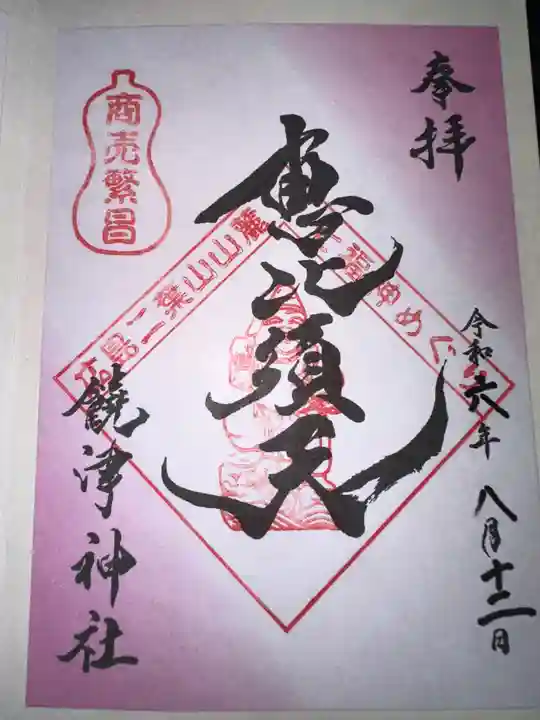 奉拝
令和六年八月十二日
恵比須天
七福神めぐり
広島二葉山山麓
商売繁昌
饒津神社